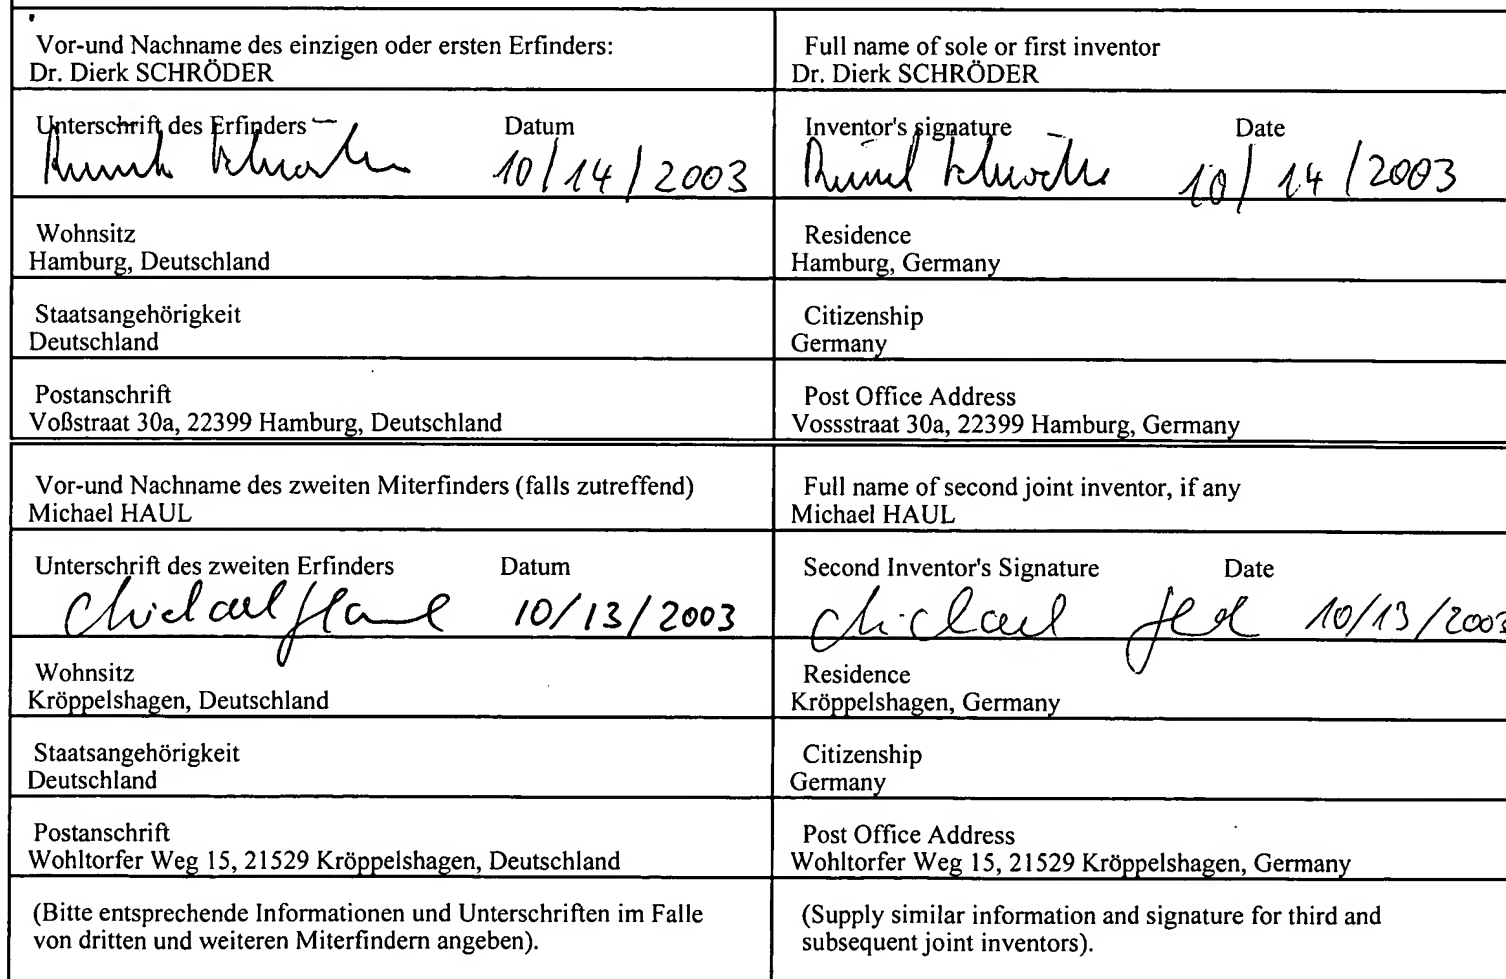 Vor-und Nachname des einzigen oder ersten Erfinders:
Dr. Dierk SCHRÖDER
Full name of sole or first inventor
Dr. Dierk SCHRÖDER
Unterschrift des Erfinders
Datum
10/14/2003
Inventor's signature
Date
10/14/2003
Wohnsitz
Hamburg, Deutschland
Residence
Hamburg, Germany
Staatsangehörigkeit
Deutschland
Citizenship
Germany
Postanschrift
Voßstraat 30a, 22399 Hamburg, Deutschland
Post Office Address
Vossstraat 30a, 22399 Hamburg, Germany
Vor-und Nachname des zweiten Miterfinders (falls zutreffend)
Michael HAUL
Full name of second joint inventor, if any
Michael HAUL
Unterschrift des zweiten Erfinders
Datum
Michael Haul 10/13/2003
Second Inventor's Signature
Date
Michael 10/13/2003
Wohnsitz
Kröppelshagen, Deutschland
Residence
Kröppelshagen, Germany
Staatsangehörigkeit
Deutschland
Citizenship
Germany
Postanschrift
Wohltorfer Weg 15, 21529 Kröppelshagen, Deutschland
Post Office Address
Wohltorfer Weg 15, 21529 Kröppelshagen, Germany
(Bitte entsprechende Informationen und Unterschriften im Falle
von dritten und weiteren Miterfindern angeben).
(Supply similar information and signature for third and
subsequent joint inventors).